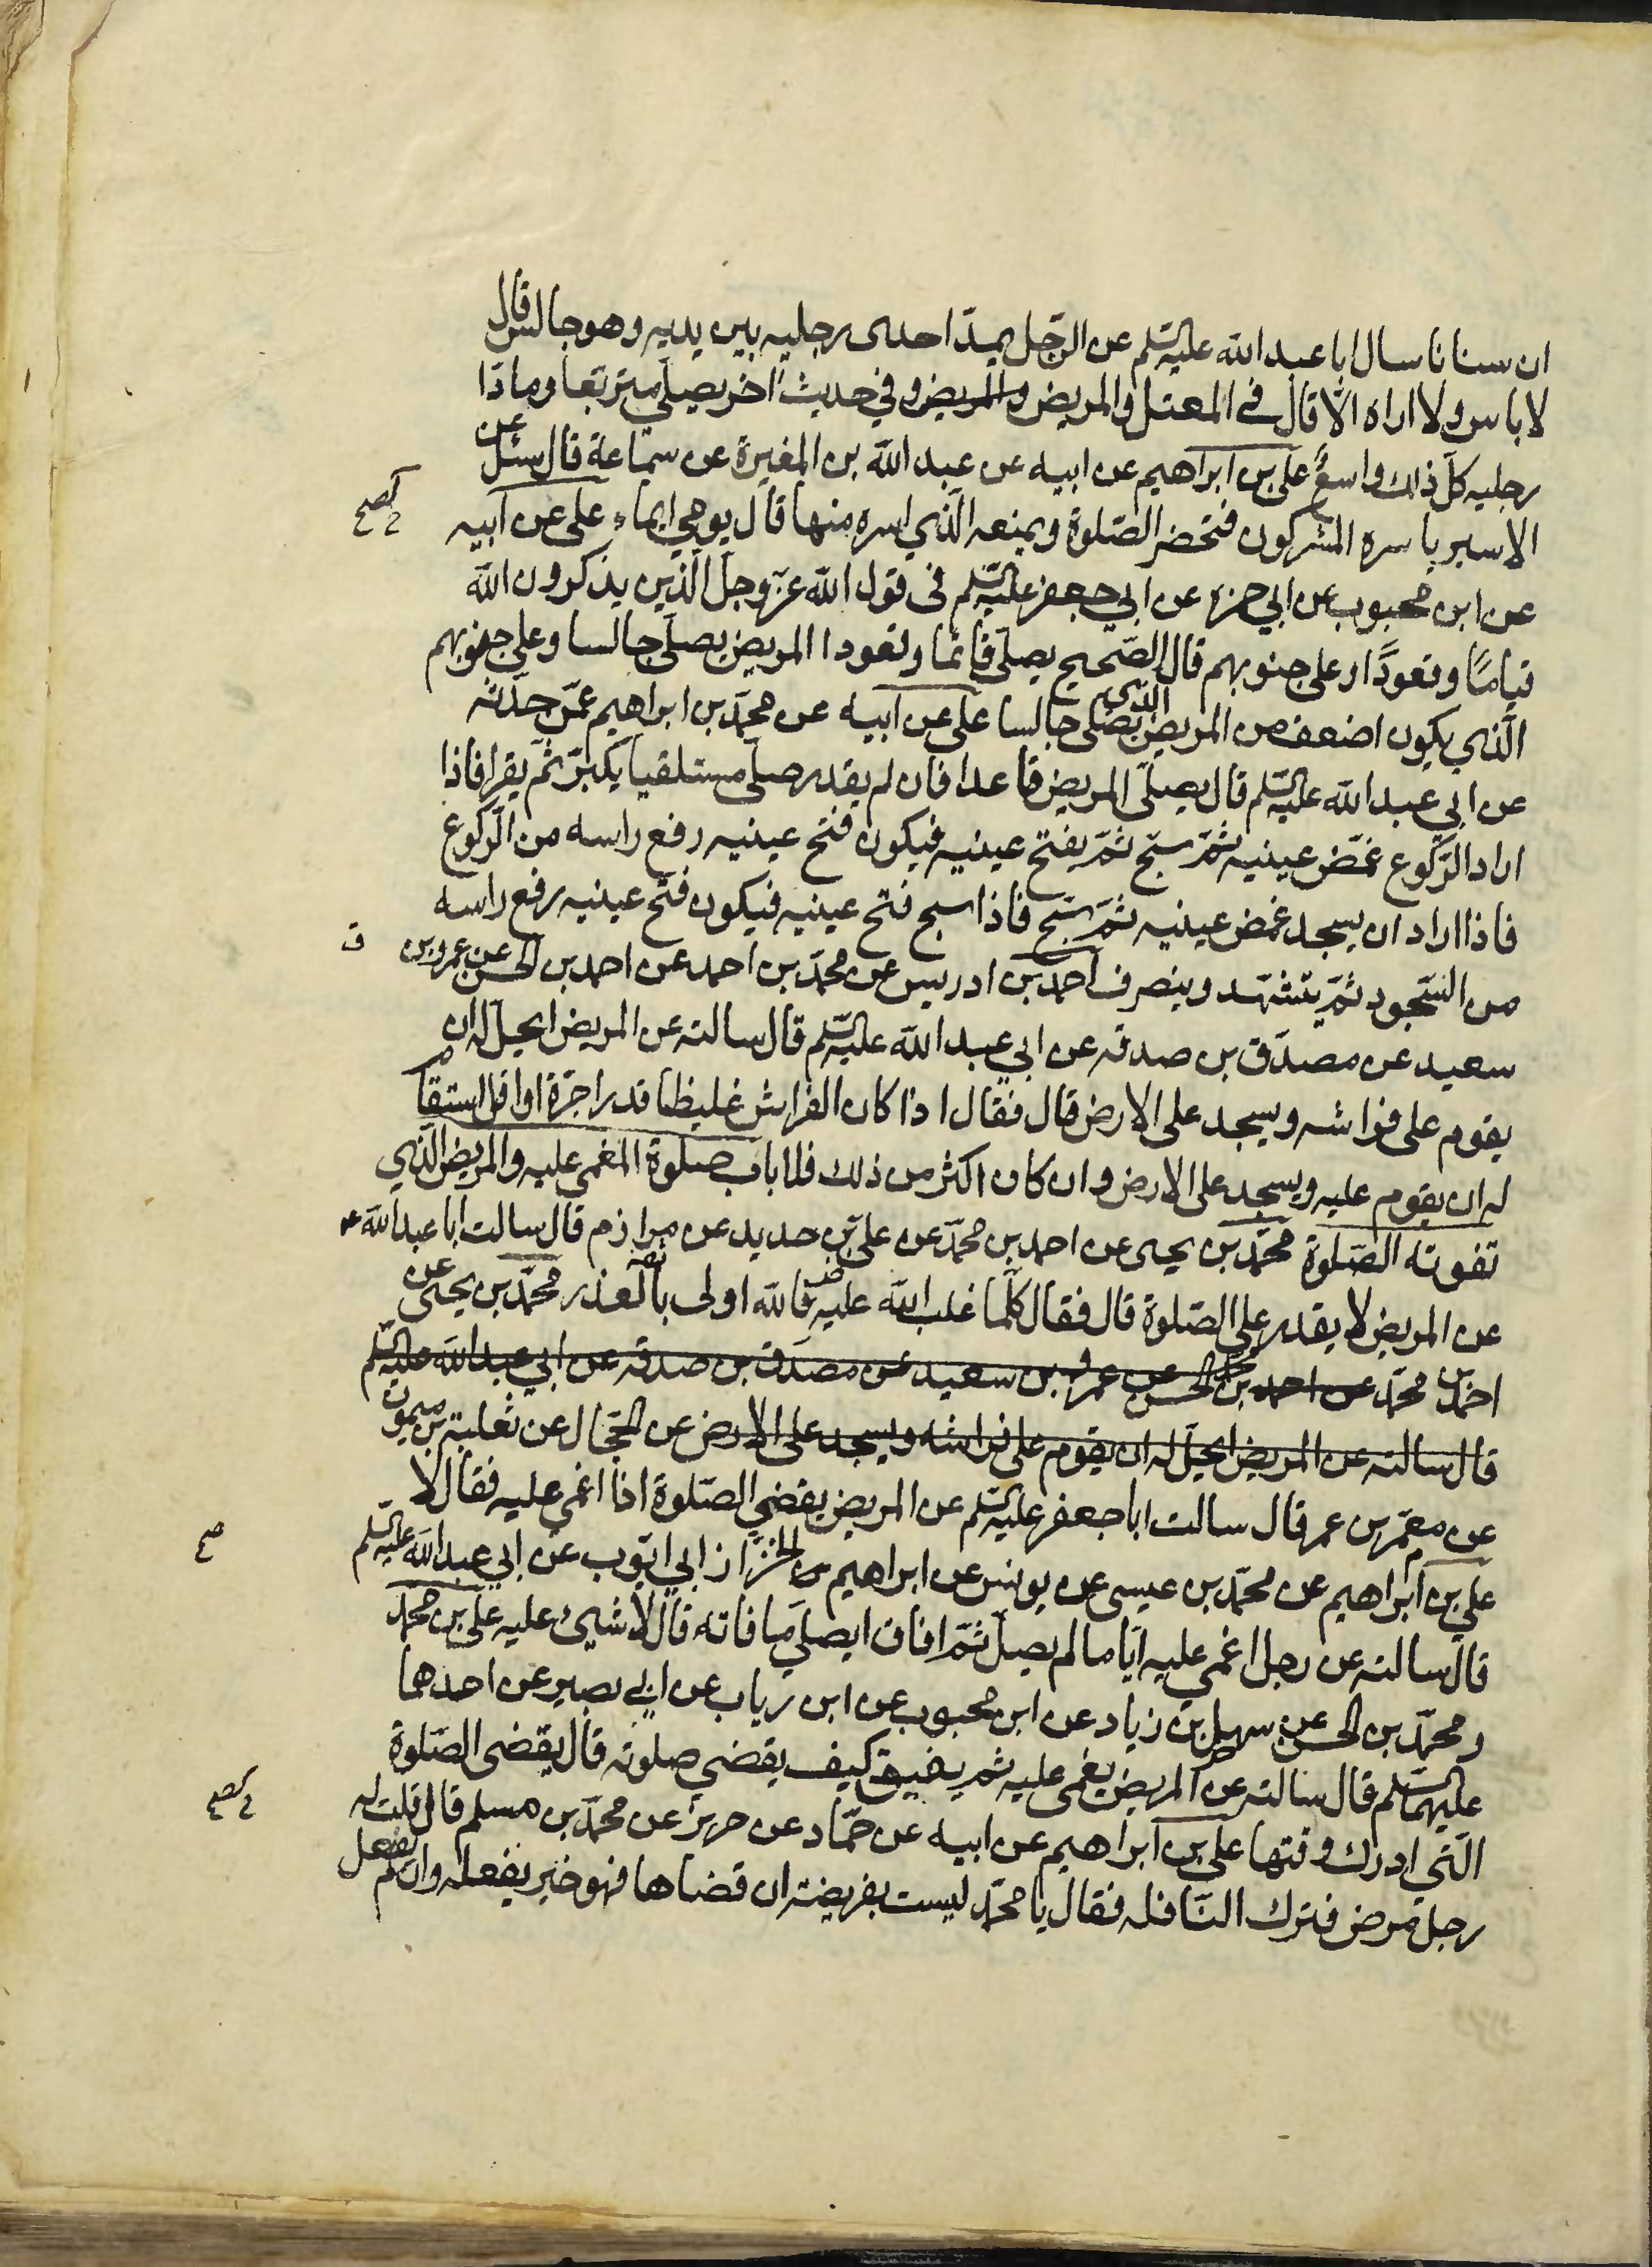 ان سنانا سال ابا عبد الله عليه السلم عن الرّجل يمدّ احدى رجليه بين يديه وهو جالس قال
لا باس ولا اراه الّا قال في المعتل والمريض والمريض وفي حديث اخر يصلي متربّعا ومادّا
رجليه كلّ ذلك واسعٌ علي بن ابراهيم عن ابيه عن عبد الله بن المغيرة عن سماعة قال سئل عن
الاسير ياسره المشركون فتحضر الصّلوة ويمنعه الّذي اسره منها قال يومي ايماء علي عن ابيه
عن ابن محبوب عن ابي حمزه عن ابي جعفر عليه السلم في قول الله عزّ وجلّ الّذين يذكرون الله
قيامًا وقعودًا وعلى جنوبهم قال الصّحيح يصلّي قائمًا وقعودا المريض يصلّي جالسا وعلى جنوبهم
الّذي يكون اضعف من المريض الذي يصلّي جالسا علي عن ابيه عن محمّد بن ابراهيم عمّن حدّثه
عن ابي عبد الله عليه السلم قال يصلّي المريض قاعدا فان لم يقدر صلّى مستلقيا يكبّر ثمّ يقرا فاذا
اراد الرّكوع غمّض عينيه ثمّ سبّح ثمّ يفتح عينيه فيكون فتح عينيه رفع راسه من الرّكوع
فاذا اراد ان يسجد غمض عينيه ثمّ سبّح فاذا سبح فتح عينيه فيكون فتح عينيه رفع راسه
من السّجود ثمّ يتشهّد وينصرف احمد بن ادريس عن محمّد بن احمد عن احمد بن الحسن عن عمرو بن
سعيد عن مصدّق بن صدقه عن ابي عبد الله عليه السلم قال سالته عن المريض ايحلّ له ان
يقوم على فراشه ويسجد على الارض قال فقال اذا كان الفراش غليظا قدر اجرّة او اقل استقام
له ان يقوم عليه ويسجد على الارض وان كان اكثر من ذلك فلا باب صلوة المغمى عليه والمريض الّذي
تفوته الصّلوة محمّد بن يحيى عن احمد بن محمّد عن عليّ بن حديد عن مرازم قال سالت ابا عبد الله ع
عن المريض لا يقدر على الصّلوة قال فقال كلّما غلب الله عليه فالله اولى بالعذر محمّد بن يحيى عن
احمد بن محمّد عن احمد بن الحسن عن عمرو بن سعيد عن مصدّق بن صدقه عن ابي عبد الله عليه السلم
قال سالته عن المريض ايحلّ له ان يقوم على فراشه ويسجد على الارض عن الحجّال عن ثعلبة بن ميمون
عن معمّر بن عمر قال سالت ابا جعفر عليه السلم عن المريض يقضي الصّلوة اذا اغمي عليه فقال لا
علي بن ابراهيم عن محمّد بن عيسى عن يونس عن ابراهيم الخزّاز ابي ايّوب عن ابي عبد الله عليه السلم
قال سالته عن رجل اغمي عليه ايّاما لم يصلّ ثمّ افاق ايصلّي ما فاته قال لا شيئ عليه علي بن محمّد
ومحمّد بن الحسن عن سهل بن زياد عن ابن محبوب عن ابن رياب عن ابي بصير عن احدهما
عليهما السلم قال سالته عن المريض يغمى عليه ثم يفيق كيف يقضي صلوته قال يقضى الصّلوة
الّتي ادرك وقتها علي بن ابراهيم عن ابيه عن حمّاد عن حريز عن محمّد بن مسلم قال قلت له
رجل مرض فترك النّافله فقال يا محمّد ليست بفريضة ان قضاها فهو خير يفعله وان لم يفعل